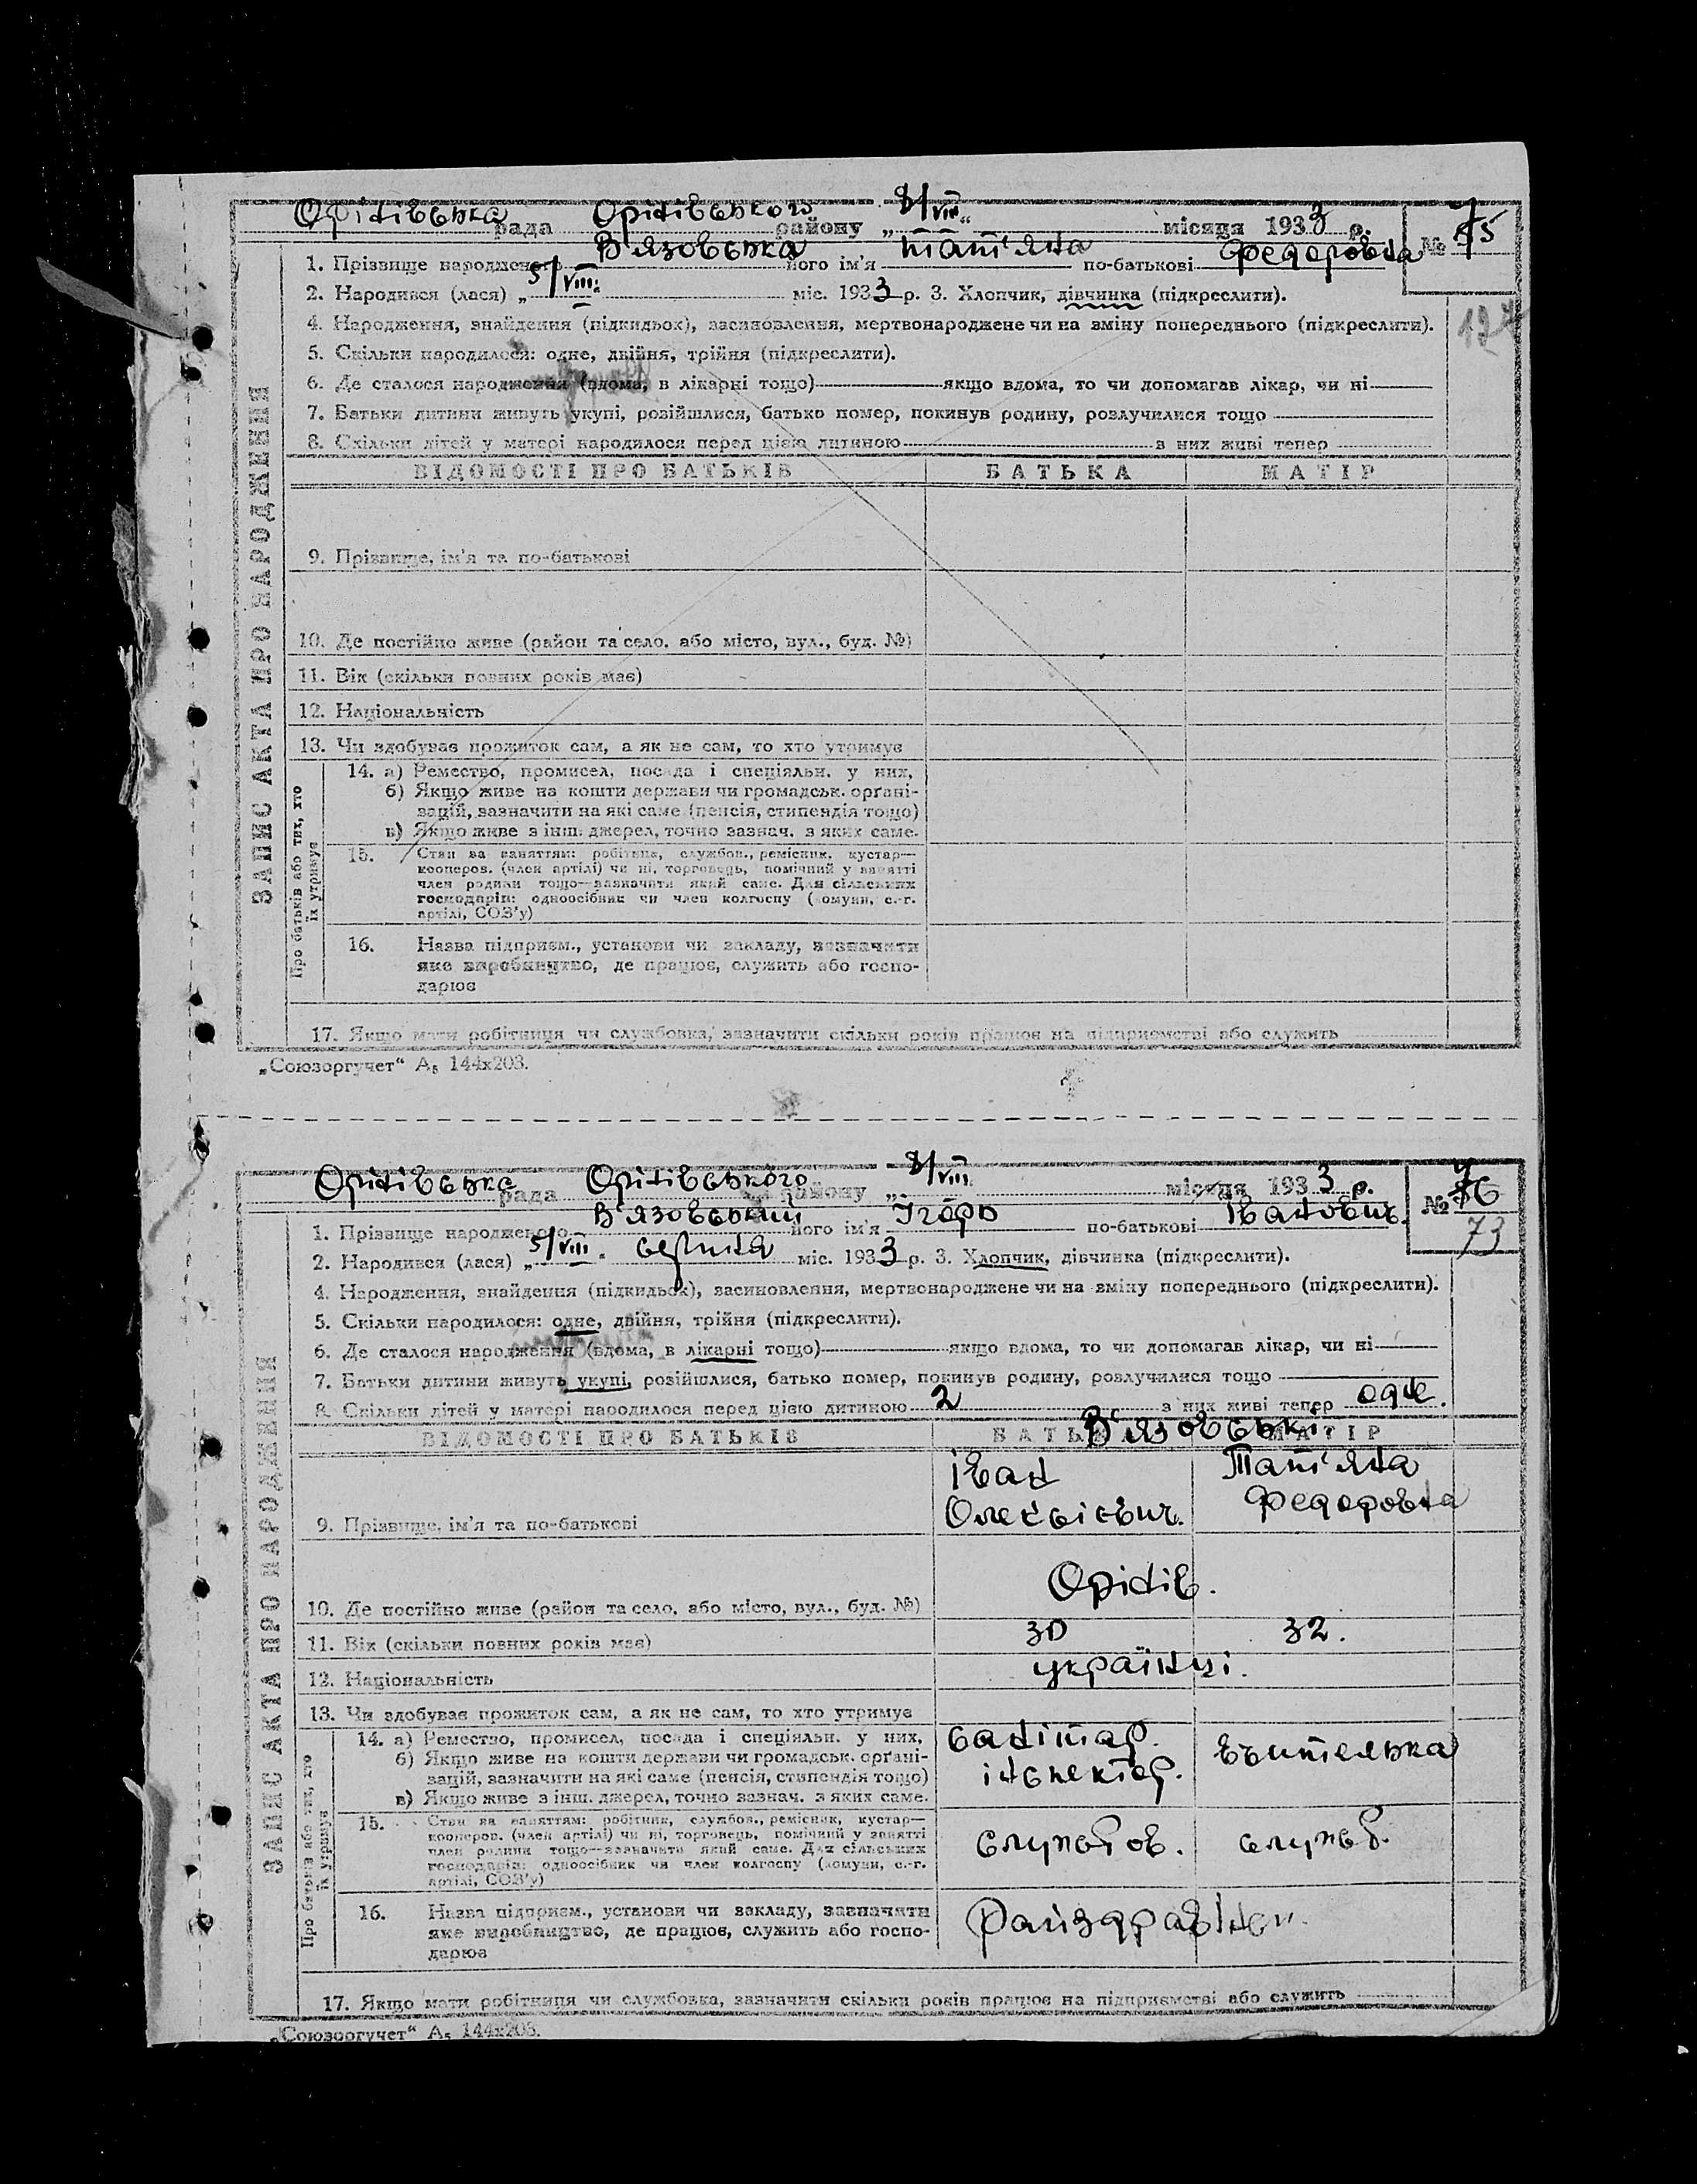 Орінінська рада Орінінського району „8/VIII“ місяця 1933 р. № 75
1. Прізвище народженого В'язовська його ім'я Тат'яна по-батькові Федоровна
2. Народився (лася) „5/VIII“ міс. 1933 р. 3. Хлопчик, дівчинка (підкреслити).
4. Народження, знайдення (підкидьок), засиновлення, мертвонароджене чи на зміну попереднього (підкреслити).
5. Скільки народилося: одне, двійня, трійня (підкреслити).
6. Де сталося народження (вдома, в лікарні тощо) якщо вдома, то чи допомагав лікар, чи ні
7. Батьки дитини живуть укупі, розійшлися, батько помер, покинув родину, розлучилися тощо
8. Скільки дітей у матері народилося перед цією дитиною з них живі тепер
ВІДОМОСТІ ПРО БАТЬКІВ БАТЬКА МАТІР
9. Прізвище, ім'я та по-батькові
10. Де постійно живе (район та село, або місто, вул., буд. №)
11. Вік (скільки повних років має)
12. Національність
13. Чи здобуває прожиток сам, а як не сам, то хто утримує
14. а) Ремество, промисел, посада і спеціяльн. у них,
б) Якщо живе на кошти держави чи громадськ. орґані-
зацій, зазначити на які саме (пенсія, стипендія тощо)
в) Якщо живе з інш. джерел, точно зазнач. з яких саме.
15. Стан за заняттям: робітник, службов., ремісник, кустар—
кооперов. (член артілі) чи ні, торговець, помічний у занятті
член родини тощо—зазначити який саме. Для сільських
господарів: одноосібник чи член колгоспу (комуни, с.-г.
артілі, СОЗ'у)
16. Назва підприєм., установи чи закладу, зазначити
яке виробництво, де працює, служить або госпо-
дарює
17. Якщо мати робітниця чи службовка, зазначити скільки років працює на підприємстві або служить
ЗАПИС АКТА ПРО НАРОДЖЕННЯ
Про батьків або тих, хто
їх утримує
„Союзоргучет“ А₅ 144х203.
Орінінська рада Орінінського району „8/VIII місяця 1933 р. № 76
73
1. Прізвище народженого В'язовський його ім'я Ігорь по-батькові Іванович.
2. Народився (лася) „5/VIII“ серпня міс. 1933 р. 3. Хлопчик, дівчинка (підкреслити).
4. Народження, знайдення (підкидьок), засиновлення, мертвонароджене чи на зміну попереднього (підкреслити).
5. Скільки народилося: одне, двійня, трійня (підкреслити).
6. Де сталося народження (вдома, в лікарні тощо) якщо вдома, то чи допомагав лікар, чи ні
7. Батьки дитини живуть укупі, розійшлися, батько помер, покинув родину, розлучилися тощо
8. Скільки дітей у матері народилося перед цією дитиною 2 з них живі тепер одне.
ВІДОМОСТІ ПРО БАТЬКІВ БАТЬКА МАТІР
В'язовські
Іван Тат'яна
Олексієвич. Федоровна
9. Прізвище, ім'я та по-батькові
Орінін.
10. Де постійно живе (район та село, або місто, вул., буд. №)
11. Вік (скільки повних років має) 30 32.
12. Національність українці.
13. Чи здобуває прожиток сам, а як не сам, то хто утримує
14. а) Ремество, промисел, посада і спеціяльн. у них, санітар.
б) Якщо живе на кошти держави чи громадськ. орґані- інспектор. вчителька
зацій, зазначити на які саме (пенсія, стипендія тощо)
в) Якщо живе з інш. джерел, точно зазнач. з яких саме.
15. Стан за заняттям: робітник, службов., ремісник, кустар—
кооперов. (член артілі) чи ні, торговець, помічний у занятті службов. служб.
член родини тощо—зазначити який саме. Для сільських
господарів: одноосібник чи член колгоспу (комуни, с.-г.
артілі, СОЗ'у)
16. Назва підприєм., установи чи закладу, зазначити
яке виробництво, де працює, служить або госпо-
дарює
17. Якщо мати робітниця чи службовка, зазначити скільки років працює на підприємстві або служить
ЗАПИС АКТА ПРО НАРОДЖЕННЯ
Про батьків або тих, хто
їх утримує
„Союзоргучет“ А₅ 144х203.